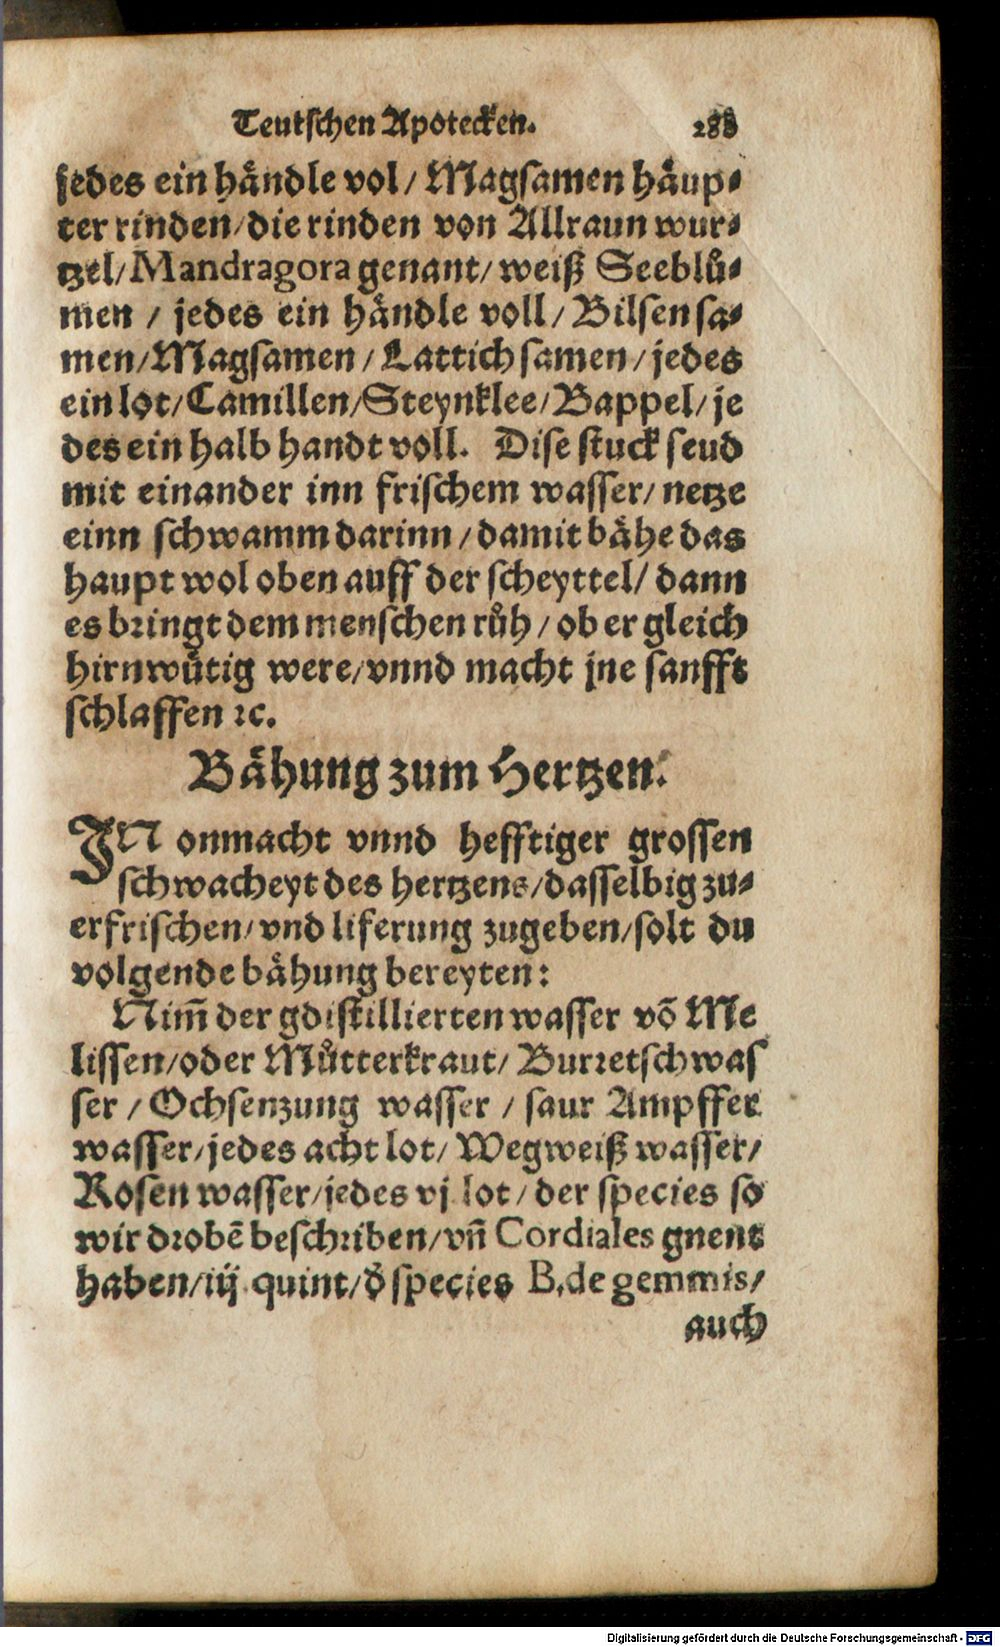 Teutschen Apotecken. 288
jedes ein händle vol / Magsamen häup-
ter rinden / die rinden von Allraun wur-
tzel / Mandragora genant / weiß Seeblů-
men / jedes ein händle voll / Bilsen sa-
men / Magsamen / Lattich samen / jedes
ein lot / Camillen / Steynklee / Bappel / je
des ein halb handt voll. Dise stuck seud
mit einander inn frischem wasser / netze
einn schwamm darinn / damit bähe das
haupt wol oben auff der scheyttel / dann
es bringt dem menschen růh / ob er gleich
hirnwütig were / vnnd macht jne sanfft
schlaffen ꝛc.
Bähung zum Hertzen.
IN onmacht vnnd hefftiger grossen
schwacheyt des hertzens / dasselbig zu-
erfrischen / vnd liferung zugeben / solt du
volgende bähung bereyten:
Nim̄ der gdistillierten wasser võ Me
lissen / oder Můtterkraut / Burretsch was
ser / Ochsenzung wasser / saur Ampffer
wasser / jedes acht lot / Wegweiß wasser /
Rosen wasser / jedes vj lot / der species so
wir drobē beschriben / vn̄ Cordiales gnent
haben / iij quint / d̕ species B. de gemmis /
auch
Digitalisierung gefördert durch die Deutsche Forschungsgemeinschaft - DFG